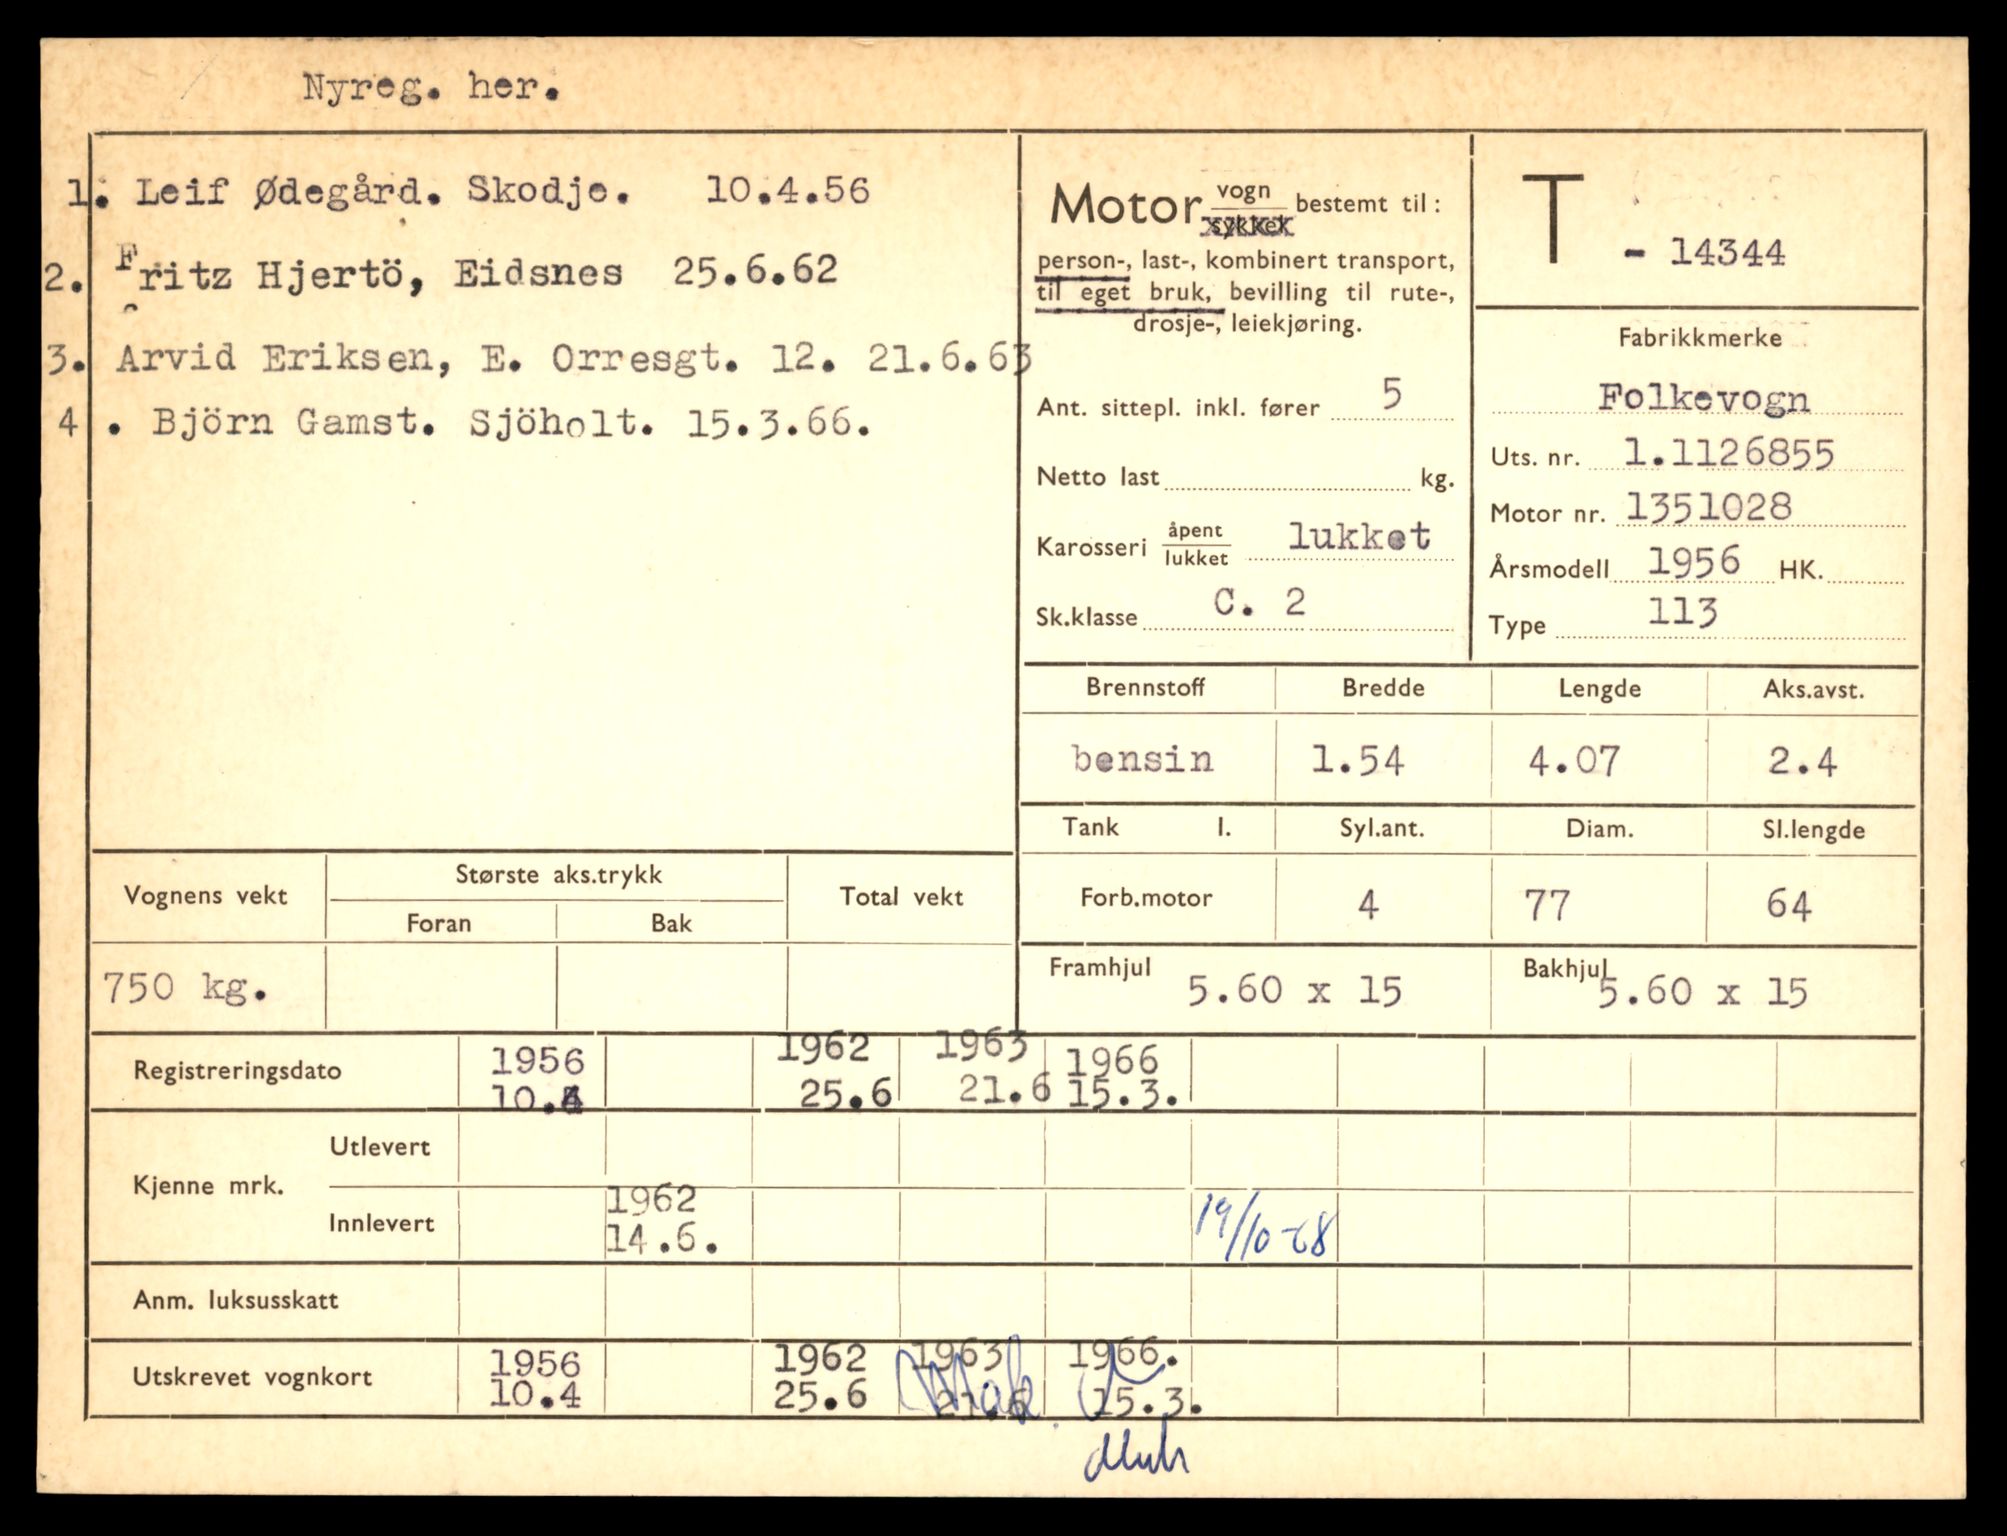 Nyreg. her.
1. Leif Ødegård. Skodje. 10.4.56
2. Fritz Hjertö, Eidsnes 25.6.62
3. Arvid Eriksen, E. Orresgt. 12. 21.6.63
4 . Björn Gamst. Sjöholt. 15.3.66.
Motor vogn / sykkel bestemt til:
person-, last-, kombinert transport,
til eget bruk, bevilling til rute-,
drosje-, leiekjøring.
Ant. sittepl. inkl. fører 5
Netto last kg.
Karosseri åpent / lukket lukket
Sk.klasse C. 2
T - 14344
Fabrikkmerke
Folkevogn
Uts. nr. 1.1126855
Motor nr. 1351028
Årsmodell 1956 HK.
Type 113
Brennstoff Bredde Lengde Aks.avst.
bensin 1.54 4.07 2.4
Tank l. Syl.ant. Diam. Sl.lengde
Forb.motor 4 77 64
Framhjul 5.60 x 15 Bakhjul 5.60 x 15
Vognens vekt Største aks.trykk Total vekt
Foran Bak
750 kg.
Registreringsdato 1956 1962 1963 1966
10.4 25.6 21.6 15.3.
Kjenne mrk. Utlevert
Innlevert 1962 19/10-68
14.6.
Anm. luksusskatt
Utskrevet vognkort 1956 1962 1963 1966.
10.4 25.6 21.6 15.3.